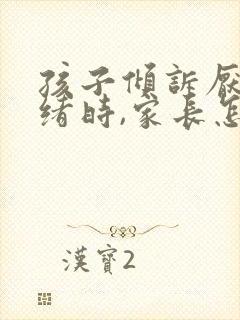 孩子傾訴厭
緒時,家長怎
漢寶2